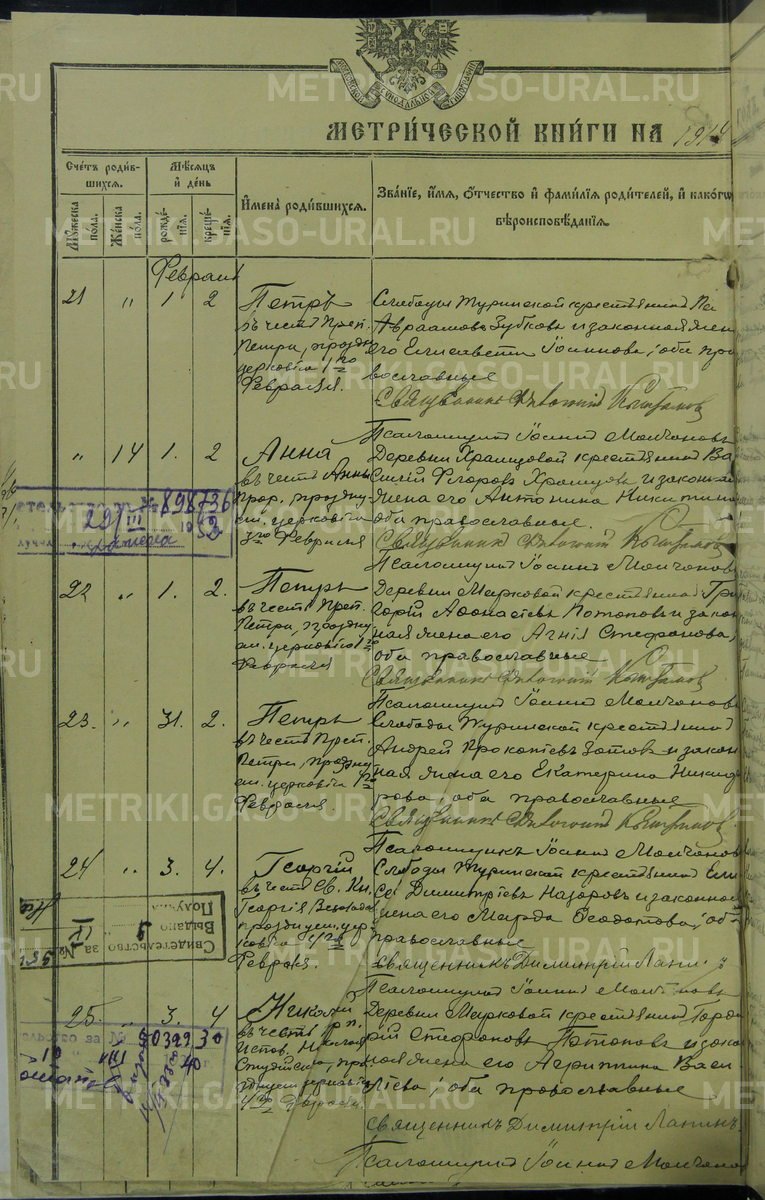 METRIKI.GASO-URAL.RU
МЕТРИ́ЧЕСКОЙ КНИ́ГИ НА 1914
Сче́тъ роди́в-
шихся.
Мѣсяцъ
и҆ де́нь
Му́жеска по́ла.
Же́нска по́ла.
рожде́нія.
креще́нія.
И҆мена̀ роди́вшихся.
Зва́ніе, и҆́мя, о҆́тчество и҆ фами́лія роди́телей, и҆ како́гѡ
вѣроисповѣ́данія.
Февраль
21 " 1. 2
Петръ
въ честь Преп.
Петра, праздну
церковію 1го
Февраля.
Слободы Туринской крестьянинъ
Авраамовъ Зубковъ и законная жен
его Елисавета Іоаннова, оба пра
вославные
Священникъ
Псаломщикъ Іоаннъ Молчановъ
" 14 1. 2
Анна
въ честь Анны
прор., праздну
ем. церковію
3го Февраля
Деревни Храмцовой крестьянинъ Ва
силій Флоровъ Храмцовъ и законная
жена его Антонина Никитина
оба православные.
Священникъ
Псаломщикъ Іоаннъ Молчановъ
№ 898736
29/III 1952
22 " 1. 2.
Петръ
въ честь Преп.
Петра, праздну
ем. церковію 1го
Февраля
Деревни Марковой крестьянинъ Гри
горій Аѳонасіевъ Потаповъ и закон
ная жена его Агнія Стефанова,
оба православные
Священникъ
Псаломщикъ Іоаннъ Молчановъ
23. " 31. 2.
Петръ
въ честь Преп.
Петра, праздну
ем. церковію 1го
Февраля
Слободы Туринской крестьянинъ
Андрей Прокопіевъ Зотовъ и закон
ная жена его Екатерина Никиф
рова, оба православные
Священникъ
Псаломщикъ Іоаннъ Молчановъ
24 " 3. 4.
Георгій
въ честь Св. Кн.
Георгія Всеволод
праздуем. цер
ковію 4го
Февраля.
Слободы Туринской крестьянинъ Ели
сей Димитріевъ Назаровъ и законная
жена его Марѳа Ѳеодотова, оба
православные
Священникъ Димитрій Лапинъ
Псаломщикъ Іоаннъ Молчановъ
Получи
Выдано
Свидетельство за №
25. " 3. 4
Николай
въ честь пр.
Испов. Николая
Студійск., пра
зднуем церковію
4го Февраля.
Деревни Марковой крестьянинъ
рій Стефановъ Потаповъ и закон
ная жена его Агриппина Васи
ліева, оба православные
Священникъ Димитрій Лапинъ
Псаломщикъ Іоаннъ Молчановъ